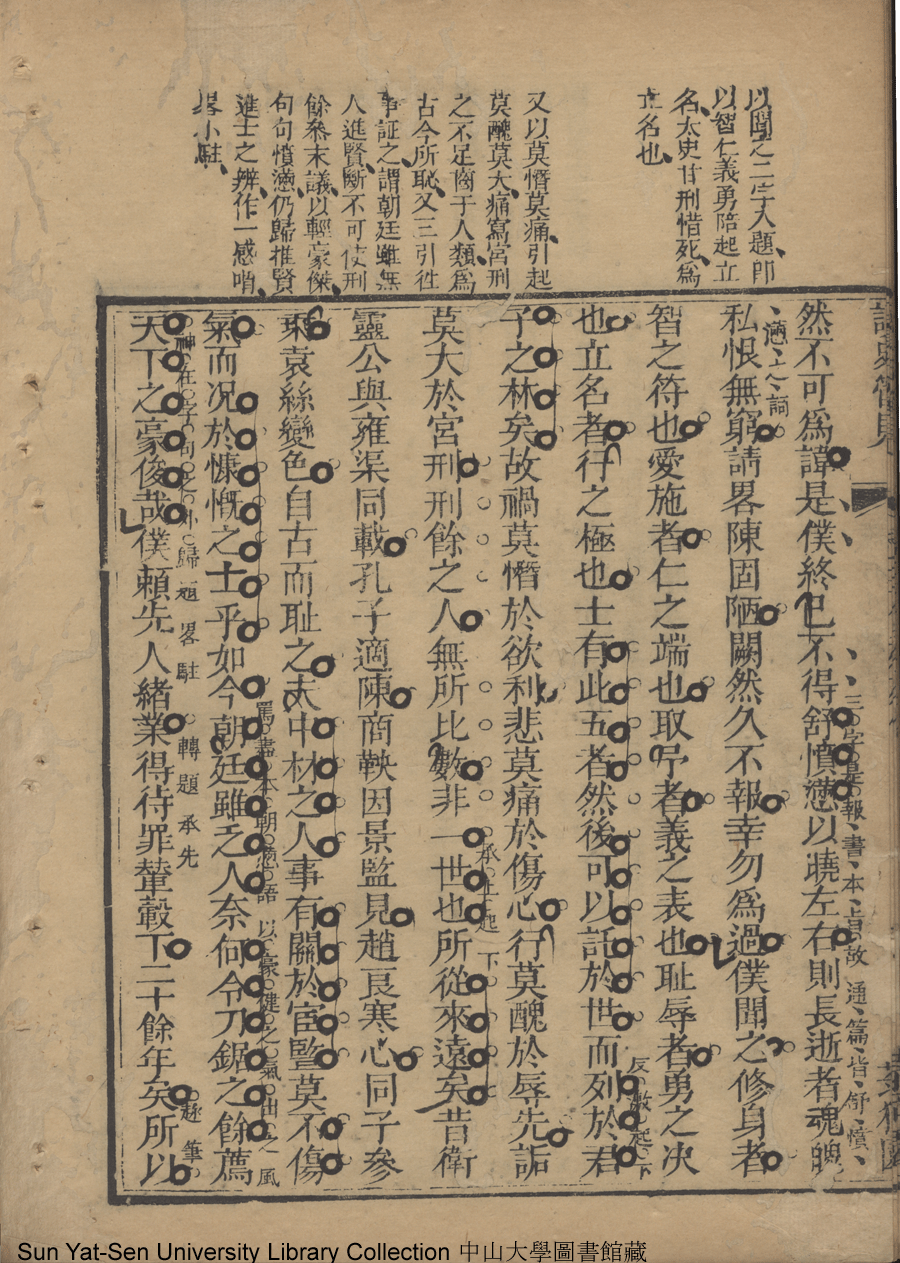 以聞之二字入題即
以智仁義勇陪起立
名太史甘刑惜死爲
立名也
又以莫憯莫痛引起
莫醜莫大痛寫宮刑
之不足齒于人類爲
古今所恥又三引徃
事証之謂朝廷雖無
人進賢斷不可使刑
餘叅末議以輕豪傑
句句憤懣仍歸推賢
進士之辨作一感哨
畧小駐
然不可爲諱是僕終已不得舒憤懣以曉左右則長逝者魂魄
三字是報書本旨故通篇皆舒憤
懣之詞
私恨無窮請畧陳固陋闕然久不報幸勿爲過僕聞之修身者
智之符也愛施者仁之端也取予者義之表也恥辱者勇之決
也立名者行之極也士有此五者然後可以託於世而列於君
反敲起下
子之林矣故禍莫憯於欲利悲莫痛於傷心行莫醜於辱先詬
莫大於宮刑刑餘之人無所比數非一世也所從來遠矣昔衛
承上起下
靈公與雍渠同載孔子適陳商鞅因景監見趙良寒心同子叅
乘袁絲變色自古而恥之夫中林之人事有關於宦監莫不傷
氣而况於慷慨之士乎如今朝廷雖乏人奈何令刀鋸之餘薦
罵盡本朝懣語 以豪健之氣出之風
神在字句之外 歸題畧駐
天下之豪俊哉僕頼先人緒業得待罪輦轂下二十餘年矣所以
轉題承先
Sun Yat-Sen University Library Collection 中山大學圖書館藏